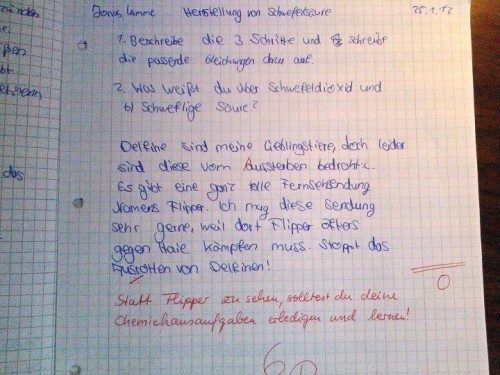 Jonas Lamme Herstellung von Schwefelsäure 25.1.12
1. Beschreibe die 3 Schritte und schreibe
die passende Gleichungen dazu auf.
2. Was weißt du über Schwefeldioxid und
b) Schweflige Säure?
Delfine sind meine Lieblingstiere, doch leider
sind diese vom Aussterben bedroht.
Es gibt eine ganz tolle Fernsehsendung
Namens Flipper. Ich mag diese Sendung
sehr gerne, weil dort Flipper öfters
gegen Haie kämpfen muss. Stoppt das
Ausrotten von Delfinen!
0
Statt Flipper zu sehen, solltest du deine
Chemiehausaufgaben erledigen und lernen!
6